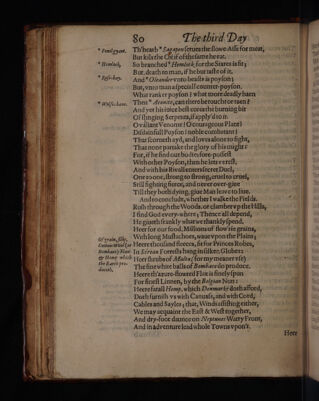 80 The third Day
* Fenelgyant. Th'heath * Sagapen serues the slowe Asse for meat,
But kils the Oxe if of the same he eat.
* Hemlock. So branched * Hemlock for the Stares is fit;
But, death to man, if he but taste of it.
* Rose-bay. And * Oleander vnto beasts is poyson;
But, vnto man a speciall counter-poyson.
What ranker poyson? what more deadly baen
* Wolfs-bane. Then * Aconite, can there be toucht or taen?
And yet his iuice best cures the burning bit
Of stinging Serpents, if apply'd to it.
O valiant Venome! O courageous Plant!
Disdainfull Poyson! noble combatant!
That scorneth ayd, and loues alone to fight,
That none partake the glory of his might:
For, if he find our bodies fore-possest
With other Poyson, then he lets vs rest,
And with his Riuall enters secret Duel,
One to one, strong to strong, cruel to cruel,
Still fighting fierce, and neuer ouer-giue
Till they both dying, giue Man leaue to liue.
And to conclude, whether I walke the Fields,
Rush through the Woods, or clamber vp the Hills,
I find God euery-where; Thence all depend,
He giueth frankly what we thankly spend.
Heer for our food, Millions of flow'rie grains,
Of grain, silk, With long Mustachoes, waue vpon the Plains;
Cotton-Wool (or Heere thousand fleeces, fit for Princes Robes,
Bombace) Flax In Serean Forrests hang in silken Globes:
& Hemp which Heer shrubs of Malta (for my meaner vse)
the Earth pro- The fine white balls of Bombace do produce.
duceth. Heere th'azure-flowred Flax is finely spun
For finest Linnen, by the Belgian Nun:
Heere fatall Hemp, which Denmarke doth afford,
Doth furnish vs with Canuass, and with Cord,
Cables and Sayles; that, Winds assisting either,
We may acquaint the East & West together,
And dry-foot daunce on Neptunes Watry Front,
And in aduenture lead whole Towns vpon't.
Heer